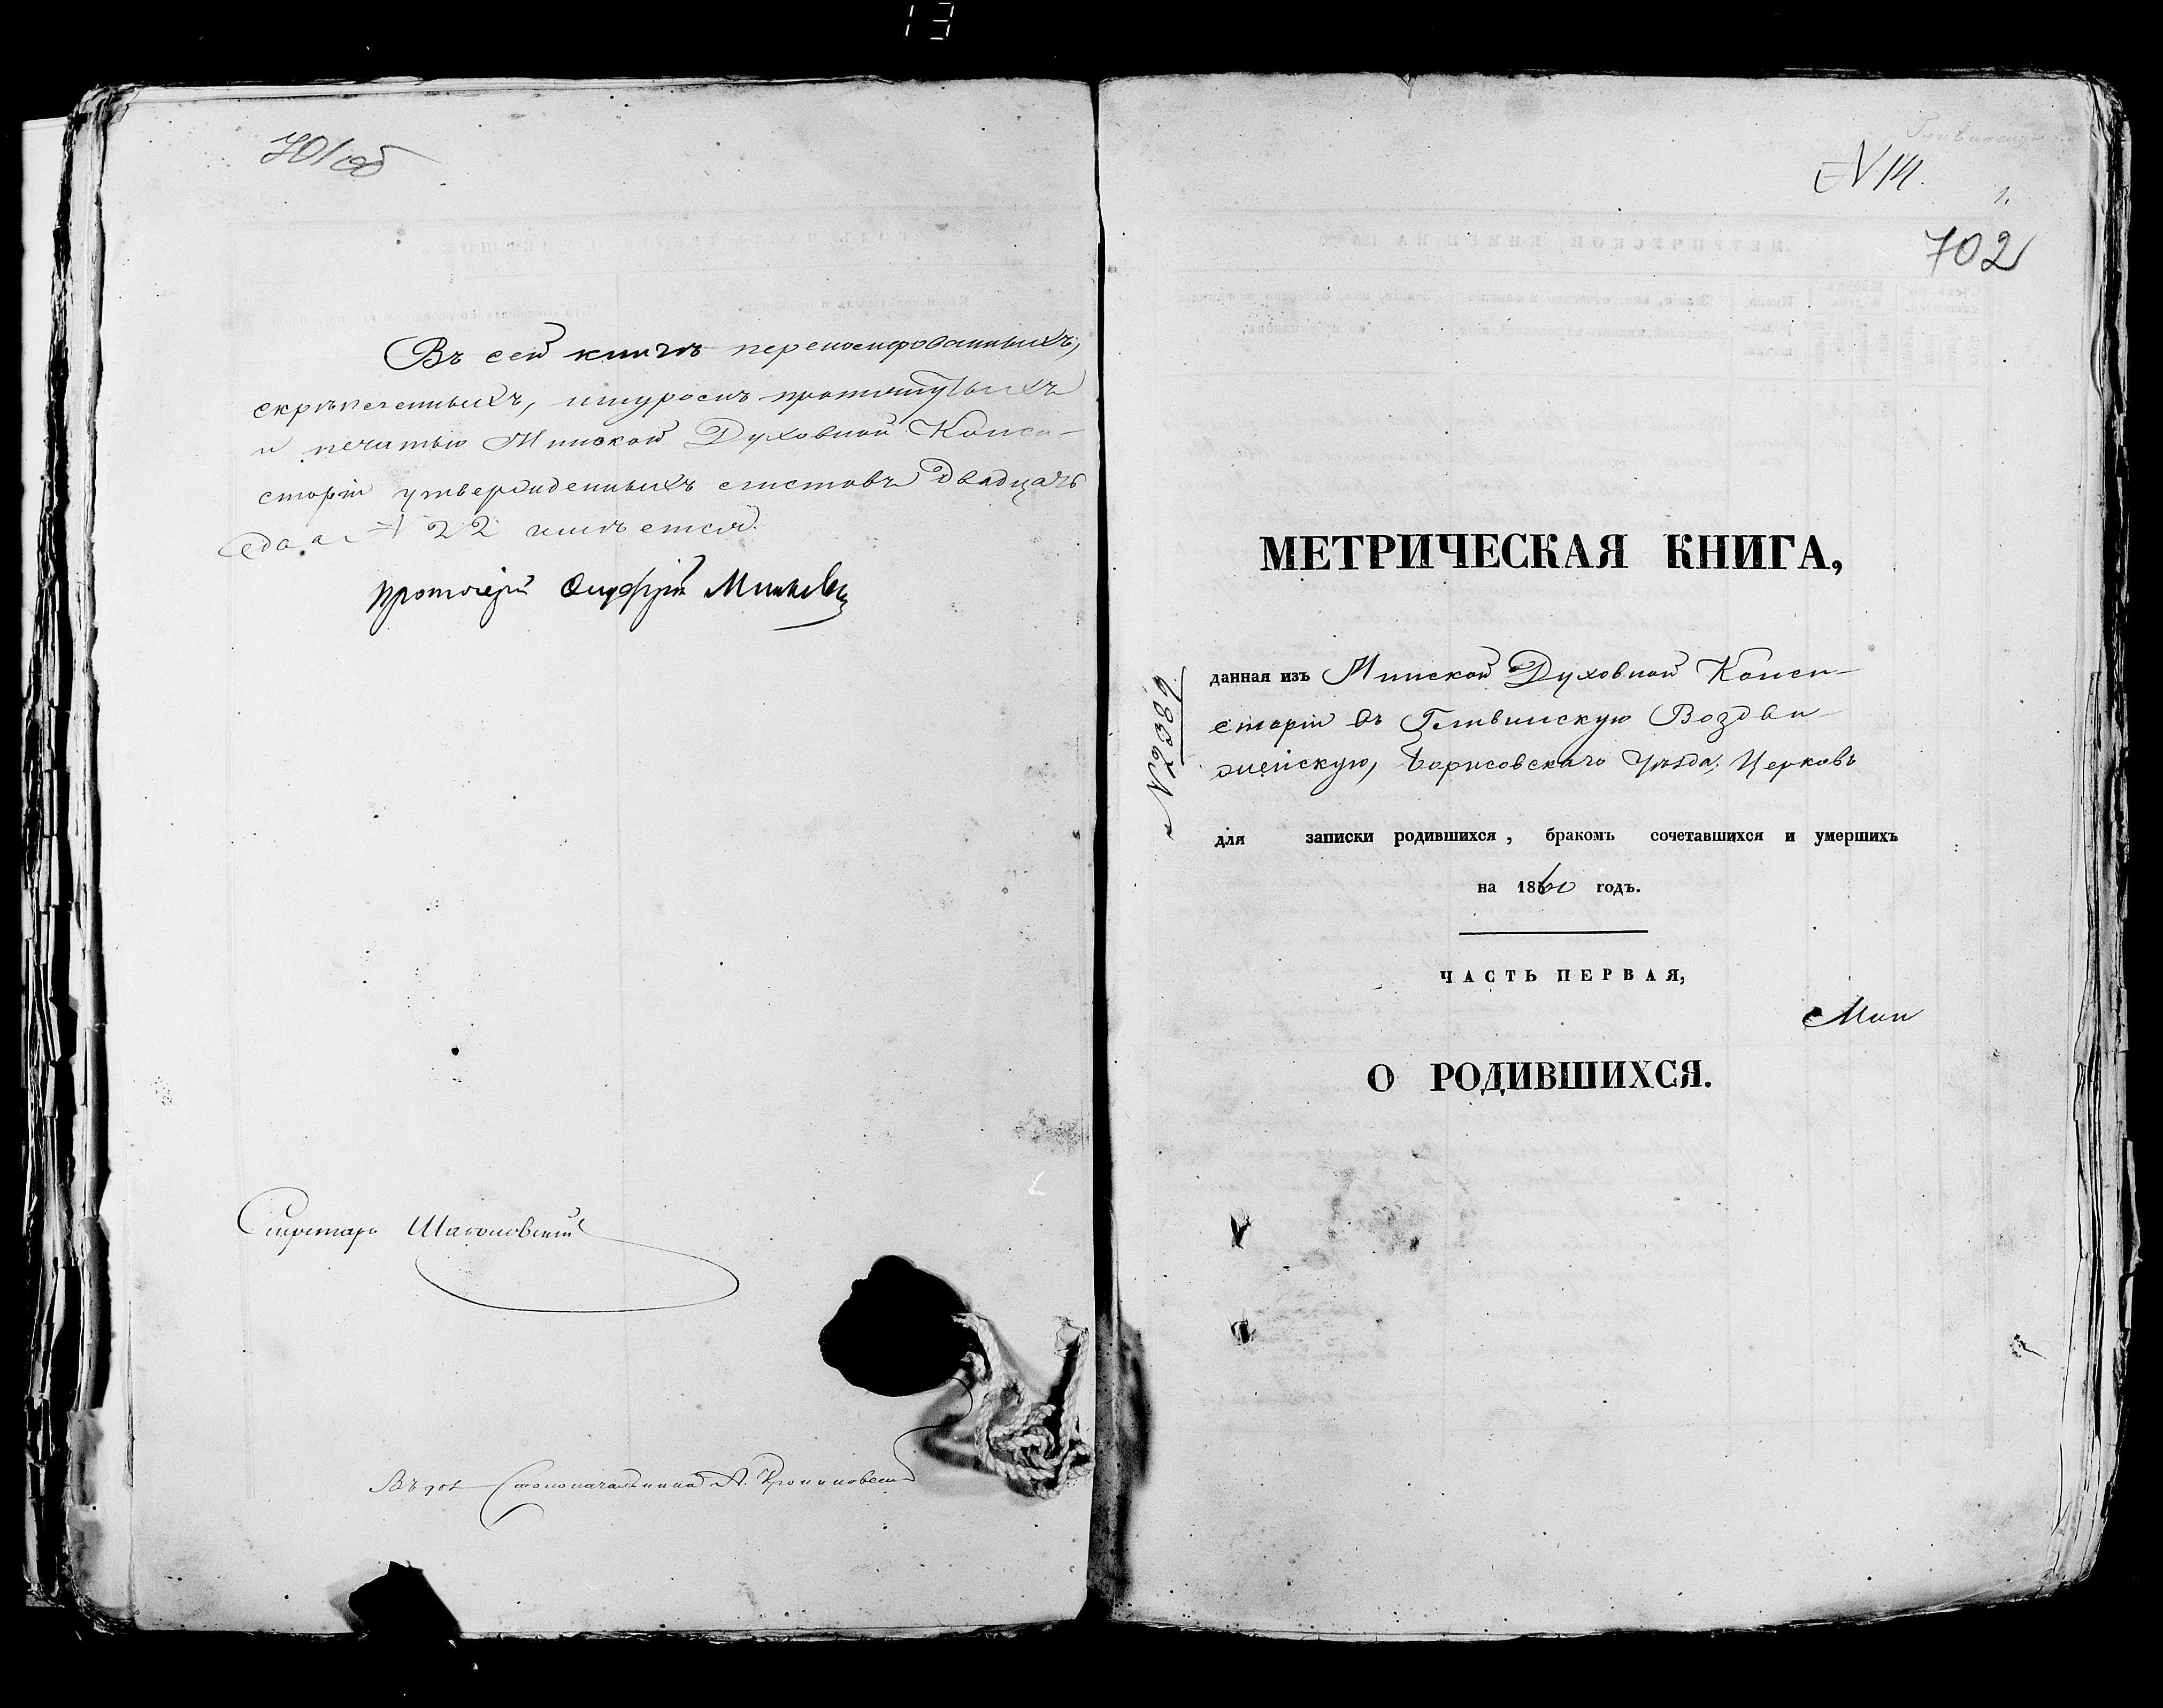 13
701 об
Въ сей книгѣ переномерованныхъ,
скрѣпленныхъ, шнуромъ протянутыхъ
и печатью Минской Духовной Конси-
сторіи утвержденныхъ листовъ двадцать
два № 22 имѣется.
Протоіерей Онуфрій
Секретарь
Въ дол. Столоначальника А.
N 14.
1.
702
МЕТРИЧЕСКАЯ КНИГА,
данная изъ Минской Духовной Конси-
сторіи въ Гливинскую Воздви-
женскую, Борисовскаго Уѣзда, Церковь
№ 2382
для записки родившихся, бракомъ сочетавшихся и умершихъ
на 1860 годъ.
ЧАСТЬ ПЕРВАЯ,
Мин
О РОДИВШИХСЯ.